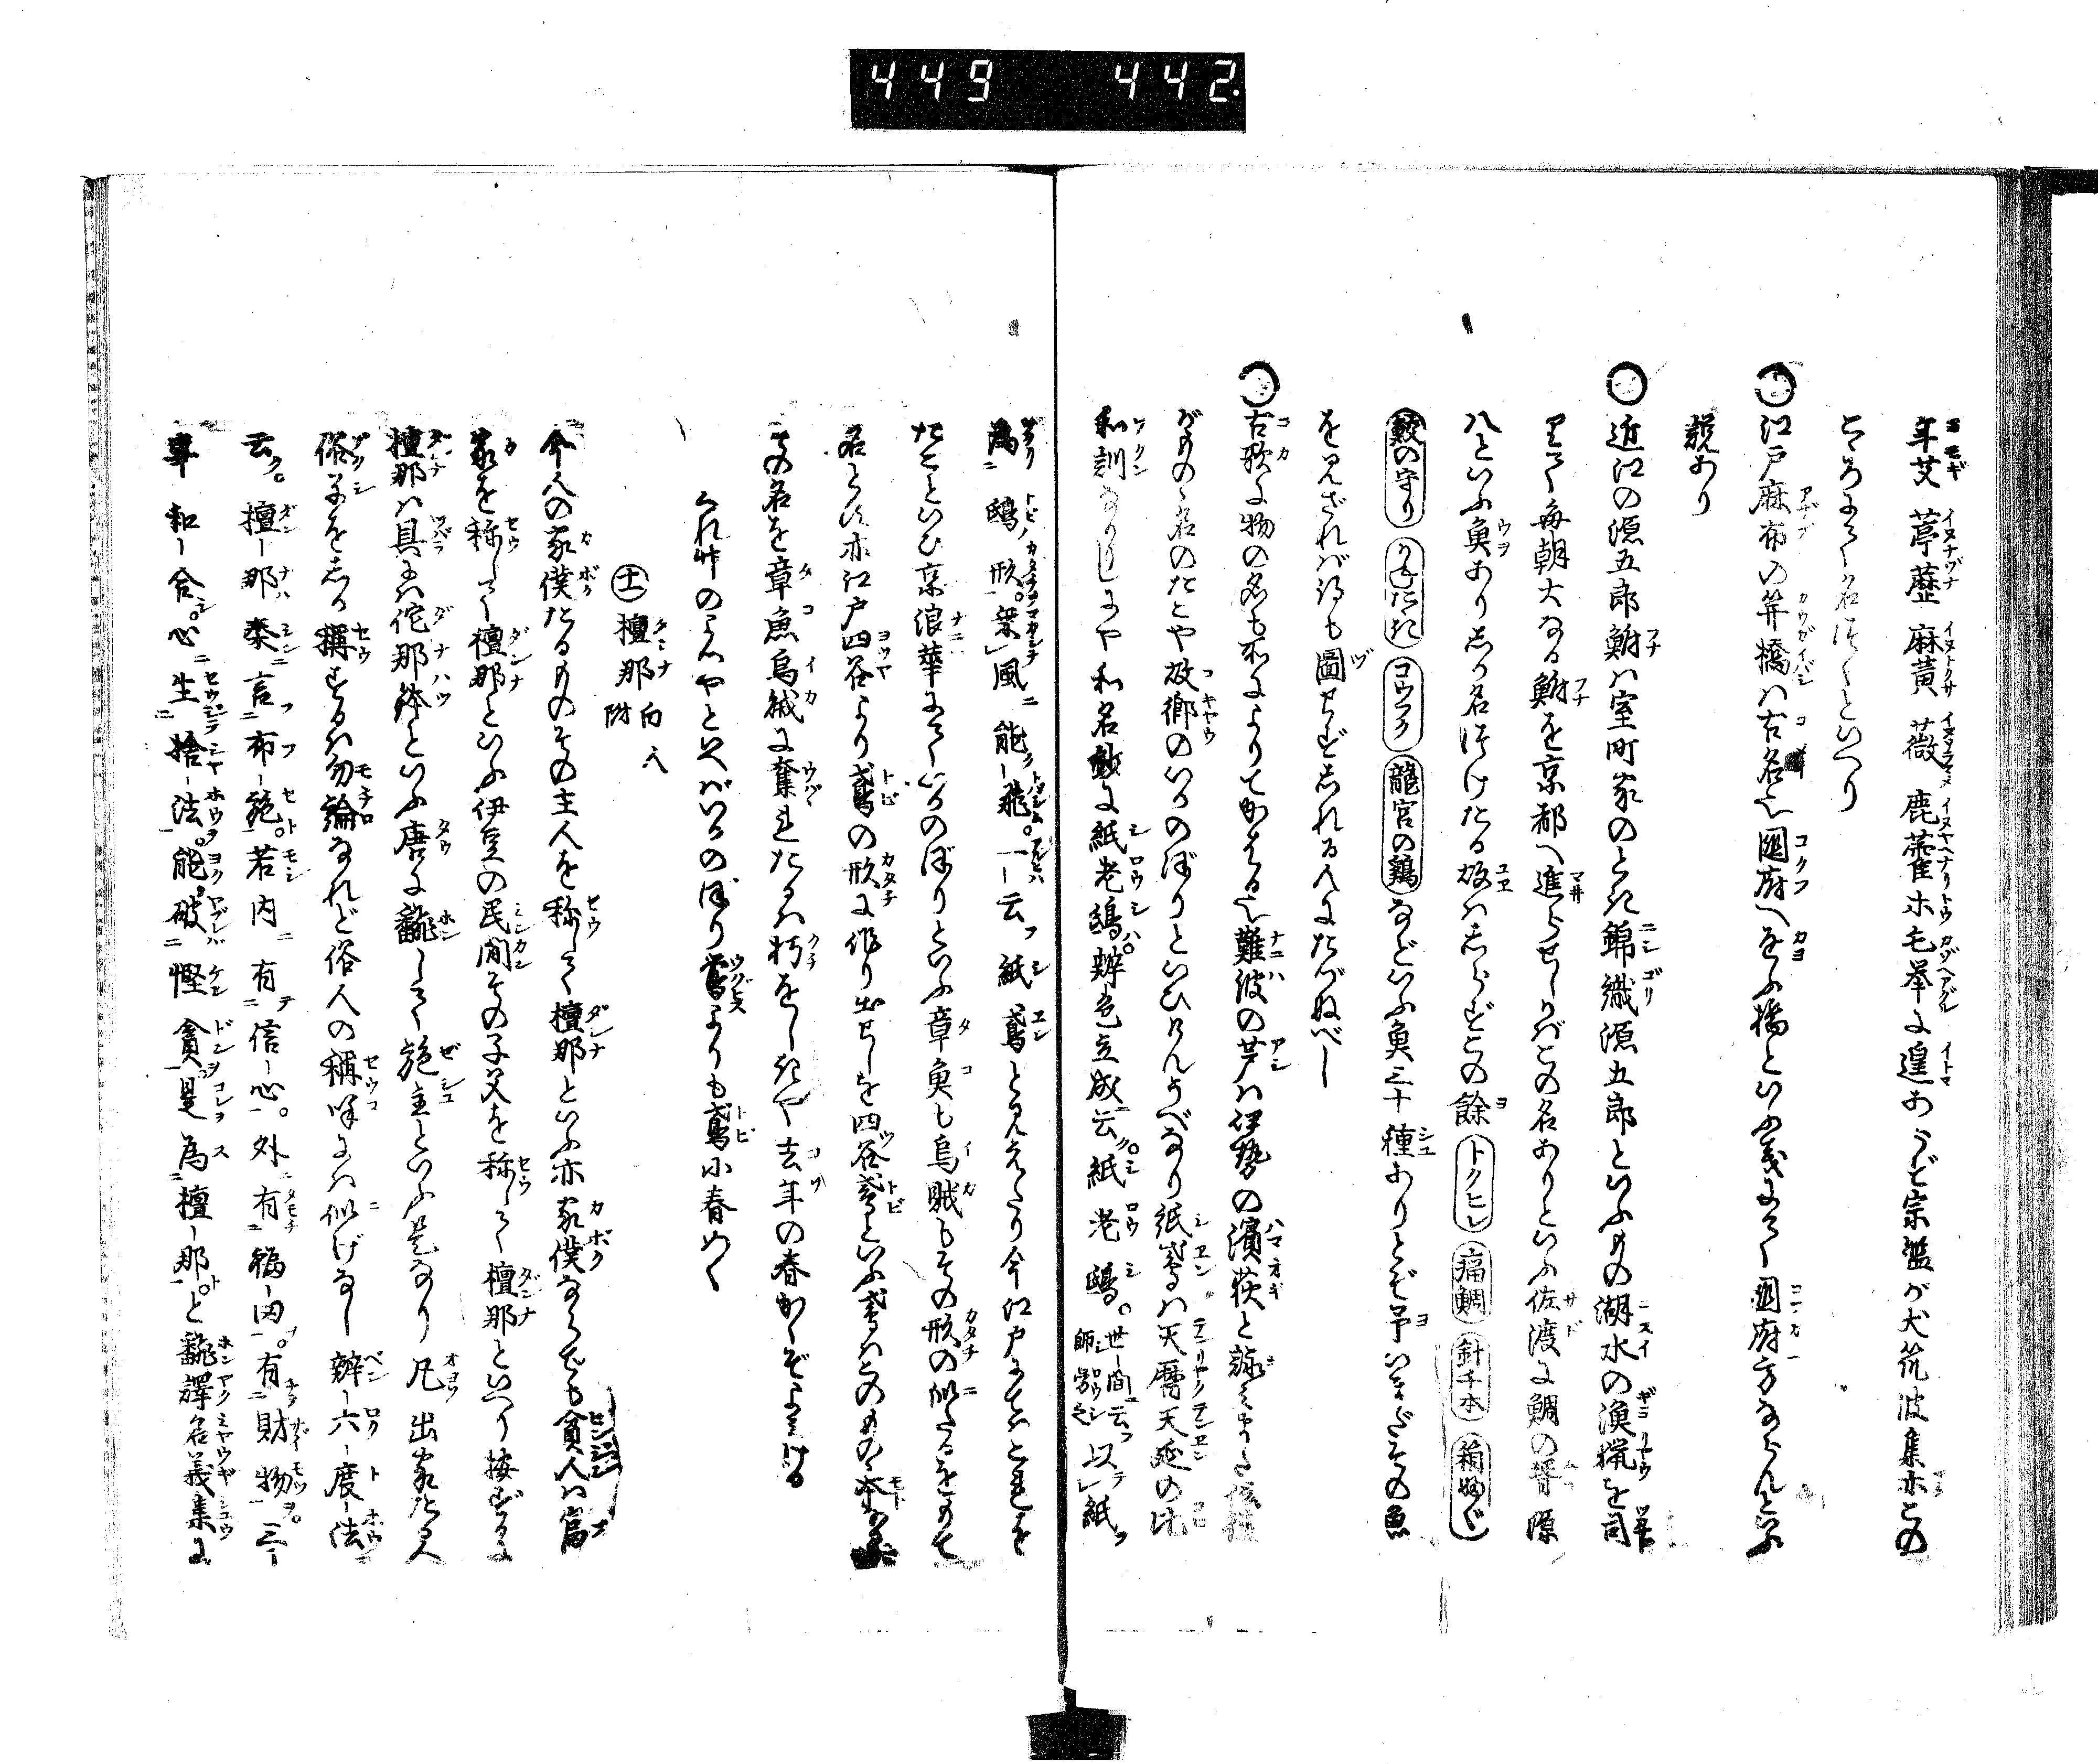 449 442.
年艾 葶藶 麻黄 薇 鹿藿ホ毛挙に遑あらず宗鑑が犬筑波集亦この
ところにて名づくといへり
江戸麻布の笄橋は古名也國府へかよふ橋といふ義にて國府方ならんといふ
説あり
近江の源五郎鮒は室町家のとき錦織源五郎といふもの湖水の漁猟を司
りて毎朝大なる鮒を京都へ進らせしかばこの名ありといふ佐渡に鯛の聟源
八といふ魚あり然る名づけたる故はしらずこの餘 トクヒレ 痛鯛 針千本 箱
鮫の守り コウフク 龍宮の鶏 などいふ魚三十種ありとぞ予いまだその魚
を見ざれば得も圖せずしれる人にたづぬべし
古歌に物の名も所によりてかはる也難波の芦は伊勢の濱荻と詠
がものゝ名のたとや故郷のいかのぼりといひけんうべなり紙鳶は天暦天延の比
和訓なかりしにや和名鈔に紙老鴟辨色立成云紙老鴟世間云以紙
為鴟形乗風能飛一云紙鳶と見えたり今江戸にてはこれを
たこといひ京浪華にていかのぼりといふ章魚も烏賊もその形の似たるをもて
名とす亦江戸四谷より鳶の形に作り出せしを四谷鳶といふ鳶はこのものゝ本
その名を章魚烏賊に奪れたるは朽をしきや去年の春かくぞよみける
くれ竹のよつやといへばいかのぼり鶯よりも鳶小春めく
十一 檀那 附
今人の家僕たるものその主人を称して檀那といふ亦家僕ならでも貧人は富
家を称して檀那といふ伊豆の民間その子父を称して檀那といへり按ずるに
檀那は具には佗那鉢といふ唐に飜して施主といふ是なり凡出家たる人
俗子をしか稱するは勿論なれど俗人の稱呼には似げなし辨六度法
云檀那秦言布施若内有信心外有福田有財物三
事和合心生捨法能破慳貪是為檀那と飜譯名義集に